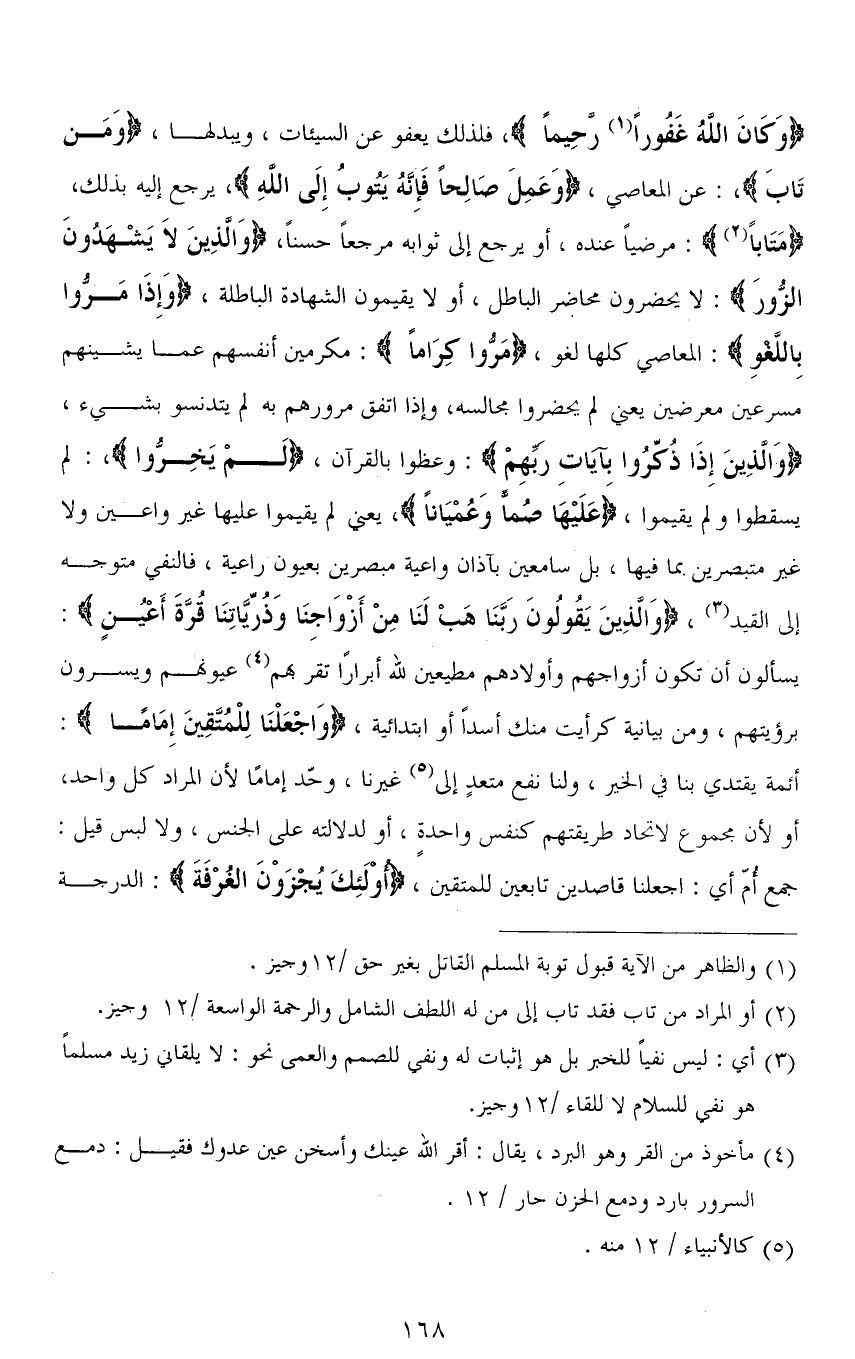 ﴿وَكَانَ اللَّهُ غَفُوراً(١) رَّحِيماً ﴾، فلذلك يعفو عن السيئات ، ويبدلهـا ، ﴿وَمَـن
تَابَ ﴾، : عن المعاصي ، ﴿وَعَمِلَ صَالِحاً فَإِنَّهُ يَتُوبُ إِلَى اللَّهِ ﴾، يرجع إليه بذلك،
﴿مَتَاباً(٢) ﴾ : مرضياً عنده ، أو يرجع إلى ثوابه مرجعاً حسناً، ﴿وَالَّذِينَ لاَ يَشْـهَدُونَ
الزُّورَ ﴾ : لا يحضرون محاضر الباطل ، أو لا يقيمون الشهادة الباطلة ، ﴿وَإِذَا مَـرُّوا
بِاللَّغْوِ ﴾ : المعاصي كلها لغو ، ﴿مَرُّوا كِرَاماً ﴾ : مكرمين أنفسهم عمـا يشـينهم
مسرعين معرضين يعني لم يحضروا مجالسه، وإذا اتفق مرورهم به لم يتدنسو بشـيء ،
﴿وَالَّذِينَ إِذَا ذُكِّرُوا بِآيَاتِ رَبِّهِمْ ﴾ : وعظوا بالقرآن ، ﴿لَـمْ يَخِـرُّوا ﴾، : لم
يسقطوا و لم يقيموا ، ﴿عَلَيْهَا صُماًّ وَعُمْيَاناً ﴾، يعني لم يقيموا عليها غير واعـين ولا
غير متبصرين بما فيها ، بل سامعين بآذان واعية مبصرين بعيون راعية ، فالنفي متوجـه
إلى القيد(٣) ، ﴿وَالَّذِينَ يَقُولُونَ رَبَّنَا هَبْ لَنَا مِنْ أَزْوَاجِنَا وَذُرِّيَّاتِنَا قُرَّةَ أَعْيُـنٍ ﴾ :
يسألون أن تكون أزواجهم وأولادهم مطيعين لله أبرارًا تقر بهم(٤) عيونهـم ويسـرون
برؤيتهم ، ومن بيانية كرأيت منك أسداً أو ابتدائية ، ﴿وَاجْعَلْنَا لِلْمُتَّقِينَ إِمَامًـا ﴾ :
أئمة يقتدي بنا في الخير ، ولنا نفع متعدٍ إلى(٥) غيرنا ، وحّد إمامًا لأن المراد كل واحد،
أو لأن مجموع لاتحاد طريقتهم كنفس واحدةٍ ، أو لدلالته على الجنس ، ولا لبس قيل :
جمع أُمّ أي : اجعلنا قاصدين تابعين للمتقين ، ﴿أُوْلَئِكَ يُجْزَوْنَ الغُرْفَةَ ﴾ : الدرجـة
(١) والظاهر من الآية قبول توبة المسلم القاتل بغير حق /١٢وجيز .
(٢) أو المراد من تاب فقد تاب إلى من له اللطف الشامل والرحمة الواسعة /١٢ وجيز.
(٣) أي : ليس نفياً للخبر بل هو إثبات له ونفي للصمم والعمى نحو : لا يلقاني زيد مسلماً
هو نفي للسلام لا للقاء /١٢وجيز.
(٤) مأخوذ من القر وهو البرد ، يقال : أقر الله عينك وأسخن عين عدوك فقيـل : دمـع
السرور بارد ودمع الحزن حار / ١٢ .
(٥) كالأنبياء / ١٢ منه .
١٦٨